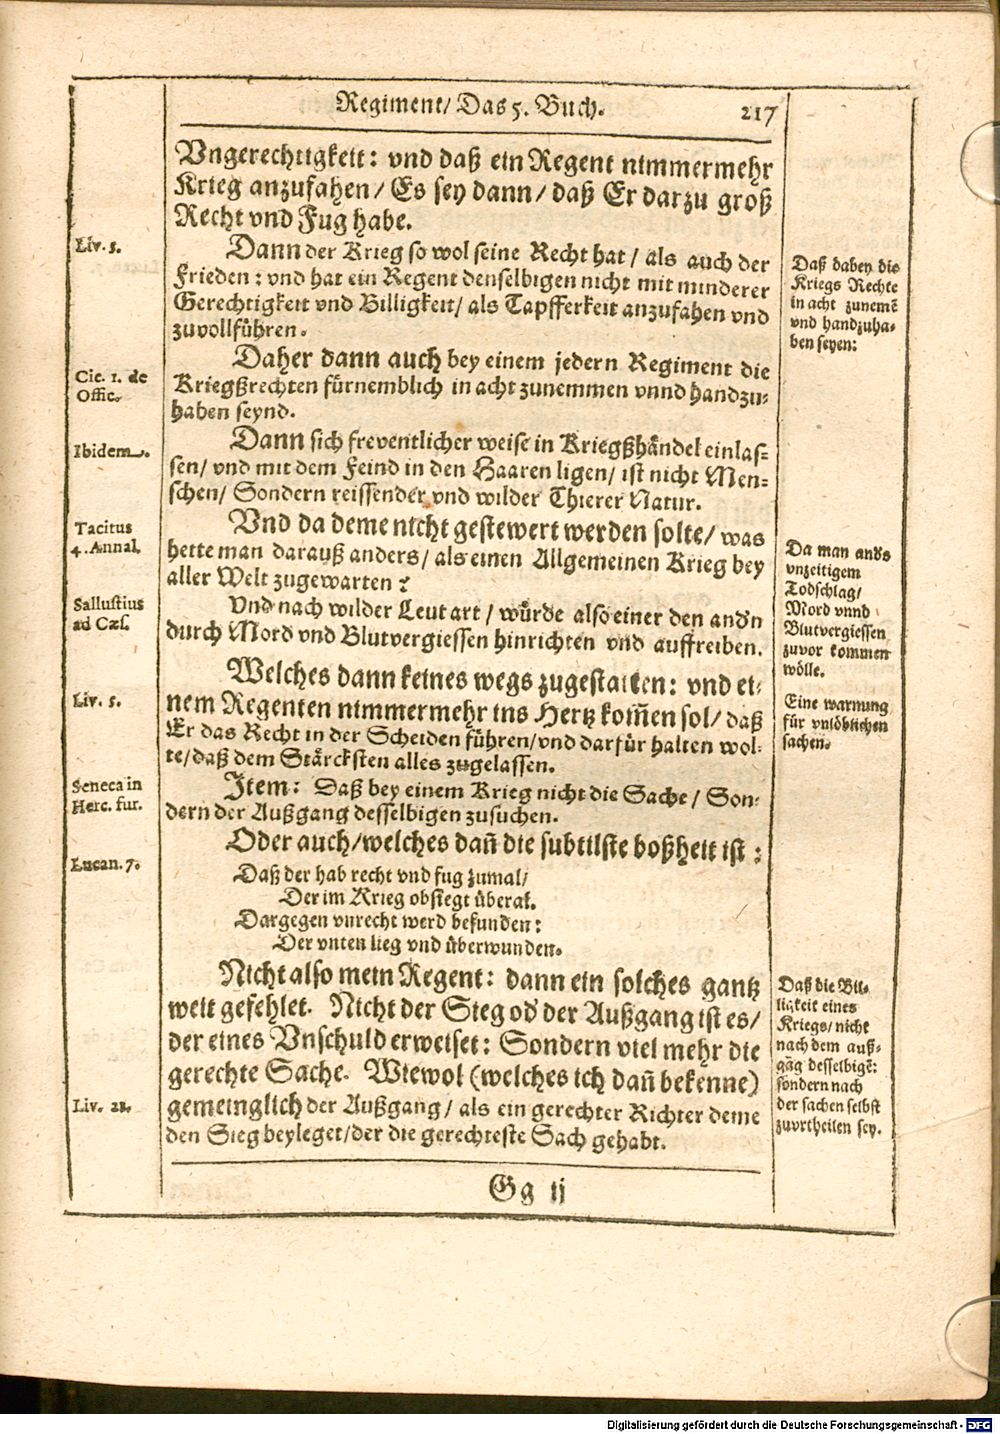 Regiment/ Das 5. Buch. 217
Vngerechtigkeit: vnd daß ein Regent nimmermehr
Krieg anzufahen/ Es sey dann/ daß Er darzu groß
Recht vnd Fug habe.
Liv. 5.
Dann der Krieg so wol seine Recht hat/ als auch der
Frieden: vnd hat ein Regent denselbigen nicht mit minderer
Gerechtigkeit vnd Billigkeit/ als Tapfferkeit anzufahen vnd
zuvollführen.
Daß dabey die
Kriegs Rechte
in acht zunemē
vnd handzuha-
ben seyen:
Cic. 1. de
Offic.
Daher dann auch bey einem jedern Regiment die
Kriegßrechten fürnemblich in acht zunemmen vnnd handzu-
haben seynd.
Ibidem.
Dann sich freventlicher weise in Kriegßhändel einlas-
sen/ vnd mit dem Feind in den Haaren ligen/ ist nicht Men-
schen/ Sondern reissender vnd wilder Thierer Natur.
Tacitus
4. Annal.
Vnd da deme nicht gestewert werden solte/ was
hette man darauß anders/ als einen Allgemeinen Krieg bey
aller Welt zugewarten?
Da man and's
vnzeitigem
Todschlag/
Mord vnnd
Blutvergiessen
zuvor kommen
wölle.
Sallustius
ad Cæs.
Vnd nach wilder Leut art/ würde also einer den and'n
durch Mord vnd Blutvergiessen hinrichten vnd auffreiben.
Liv. 5.
Welches dann keines wegs zugestatten: vnd ei-
nem Regenten nimmermehr ins Hertz kom̃en sol/ daß
Er das Recht in der Scheiden führen/ vnd darfür halten wol-
te/ daß dem Stärcksten alles zugelassen.
Eine warnung
für vnlöblichen
sachen.
Seneca in
Herc. fur.
Item: Daß bey einem Krieg nicht die Sache/ Son-
dern der Außgang desselbigen zusuchen.
Oder auch/ welches dañ die subtilste boßheit ist:
Lucan. 7.
Daß der hab recht vnd fug zumal/
Der im Krieg obsiegt überal.
Dargegen vnrecht werd befunden:
Der vnten lieg vnd überwunden.
Nicht also mein Regent: dann ein solches gantz
weit gefehlet. Nicht der Sieg od' der Außgang ist es/
der eines Vnschuld erweiset: Sondern viel mehr die
gerechte Sache. Wiewol (welches ich dañ bekenne)
gemeinglich der Außgang/ als ein gerechter Richter deme
den Sieg beyleget/ der die gerechteste Sach gehabt.
Daß die Bil-
ligkeit eines
Kriegs/ nicht
nach dem auß-
gāg desselbigē:
sondern nach
der sachen selbst
zuvrtheilen sey.
Liv. 21.
Gg ij
Digitalisierung gefördert durch die Deutsche Forschungsgemeinschaft - DFG